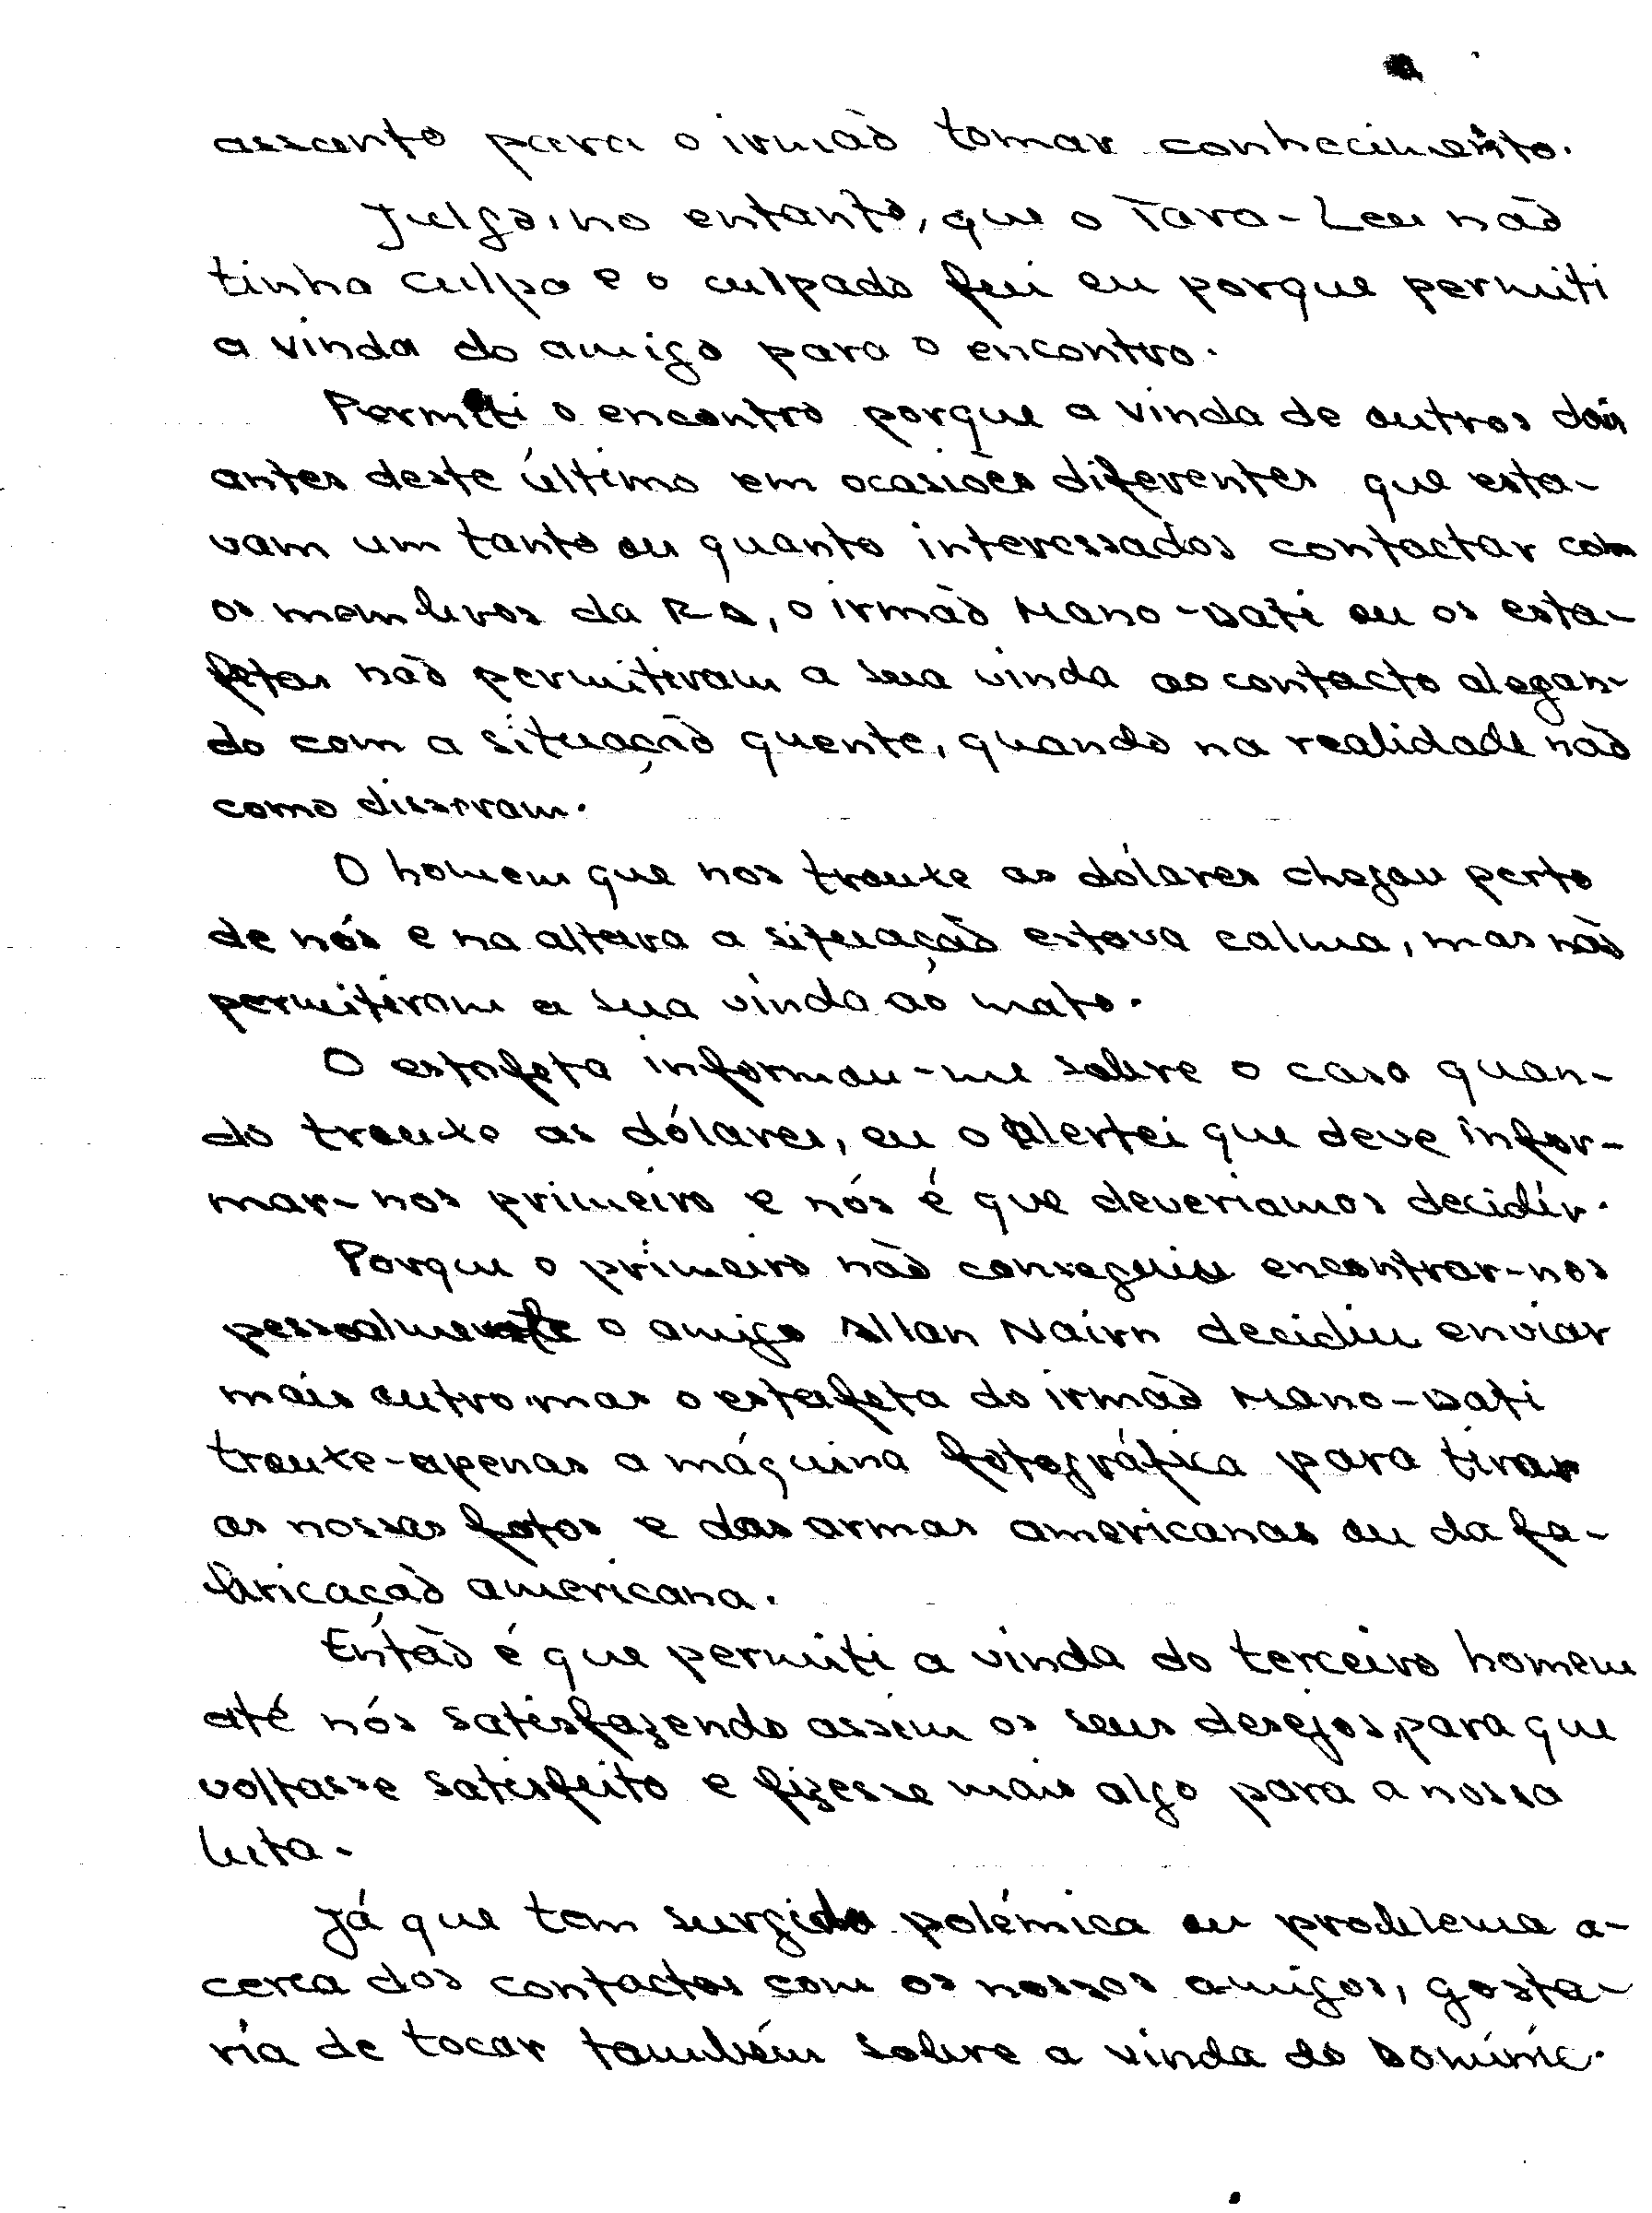 assunto para o irmão tomar conhecimento.
Julgo, no entanto, que o Tara-Leu não
tinha culpa e o culpado fui eu porque permiti
a vinda do amigo para o encontro.
Permiti o encontro porque a vinda de outros dois
antes deste último em ocasiões diferentes que esta-
vam um tanto ou quanto interessados contactar com
os membros da RA, o irmão Mano-Wati ou os esta-
fetas não permitiram a sua vinda ao contacto alegan-
do com a situação quente, quando na realidade não
como disseram.
O homem que nos trouxe as dólares chegou perto
de nós e na altura a situação estava calma, mas não
permitiram a sua vinda ao mato.
O estafeta informou-me sobre o caso quan-
do trouxe as dólares, eu o alertei que deve infor-
mar-nos primeiro e nós é que deveriamos decidir.
Porque o primeiro não conseguiu encontrar-nos
pessoalmente o amigo Allan Nairn decidiu enviar
mais outro, mas o estafeta do irmão Mano-Wati
trouxe-apenas a máquina fotográfica para tirar
as nossas fotos e das armas americanas ou da fa-
bricacão americana.
Então é que permiti a vinda do terceiro homem
até nós satisfazendo assim os seus desejos, para que
voltasse satisfeito e fizesse mais algo para a nossa
luta.
Já que tem surgido polémica ou problema a-
cerca dos contactos com os nossos amigos, gosta-
ria de tocar também sobre a vinda do Dominic.